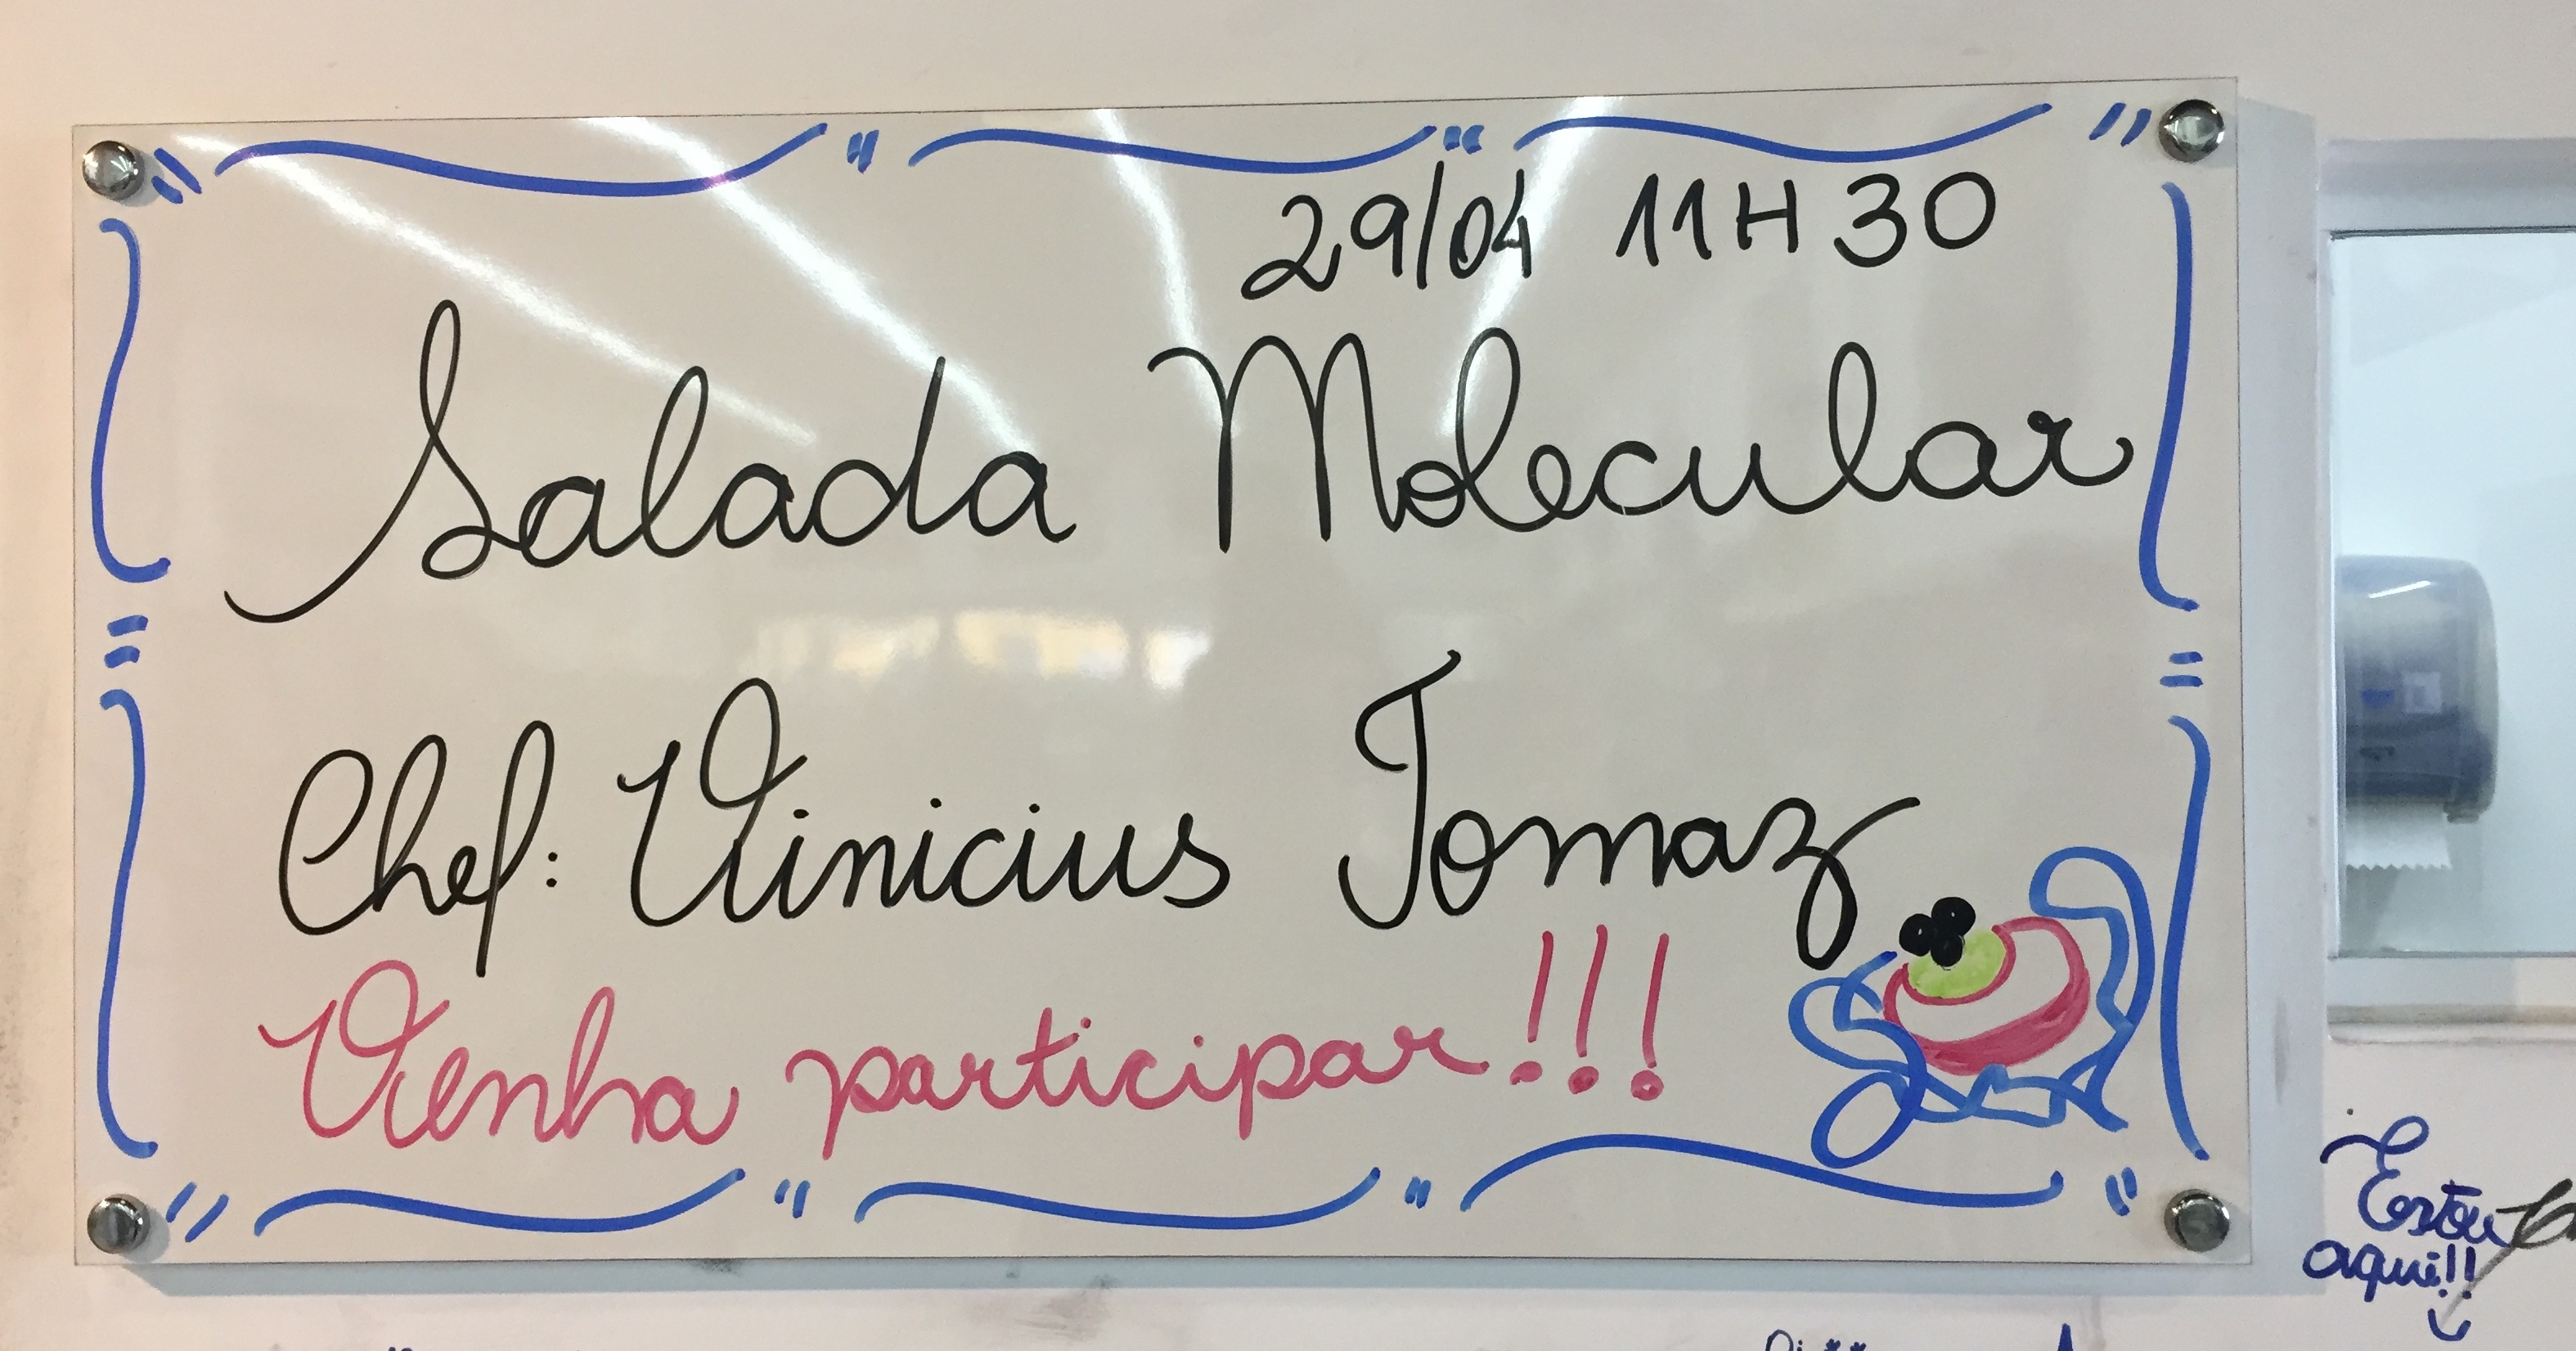 29/04 11H30
Salada Molecular
Chef: Vinicius Tomaz
Venha participar!!!
Estou
aqui!!